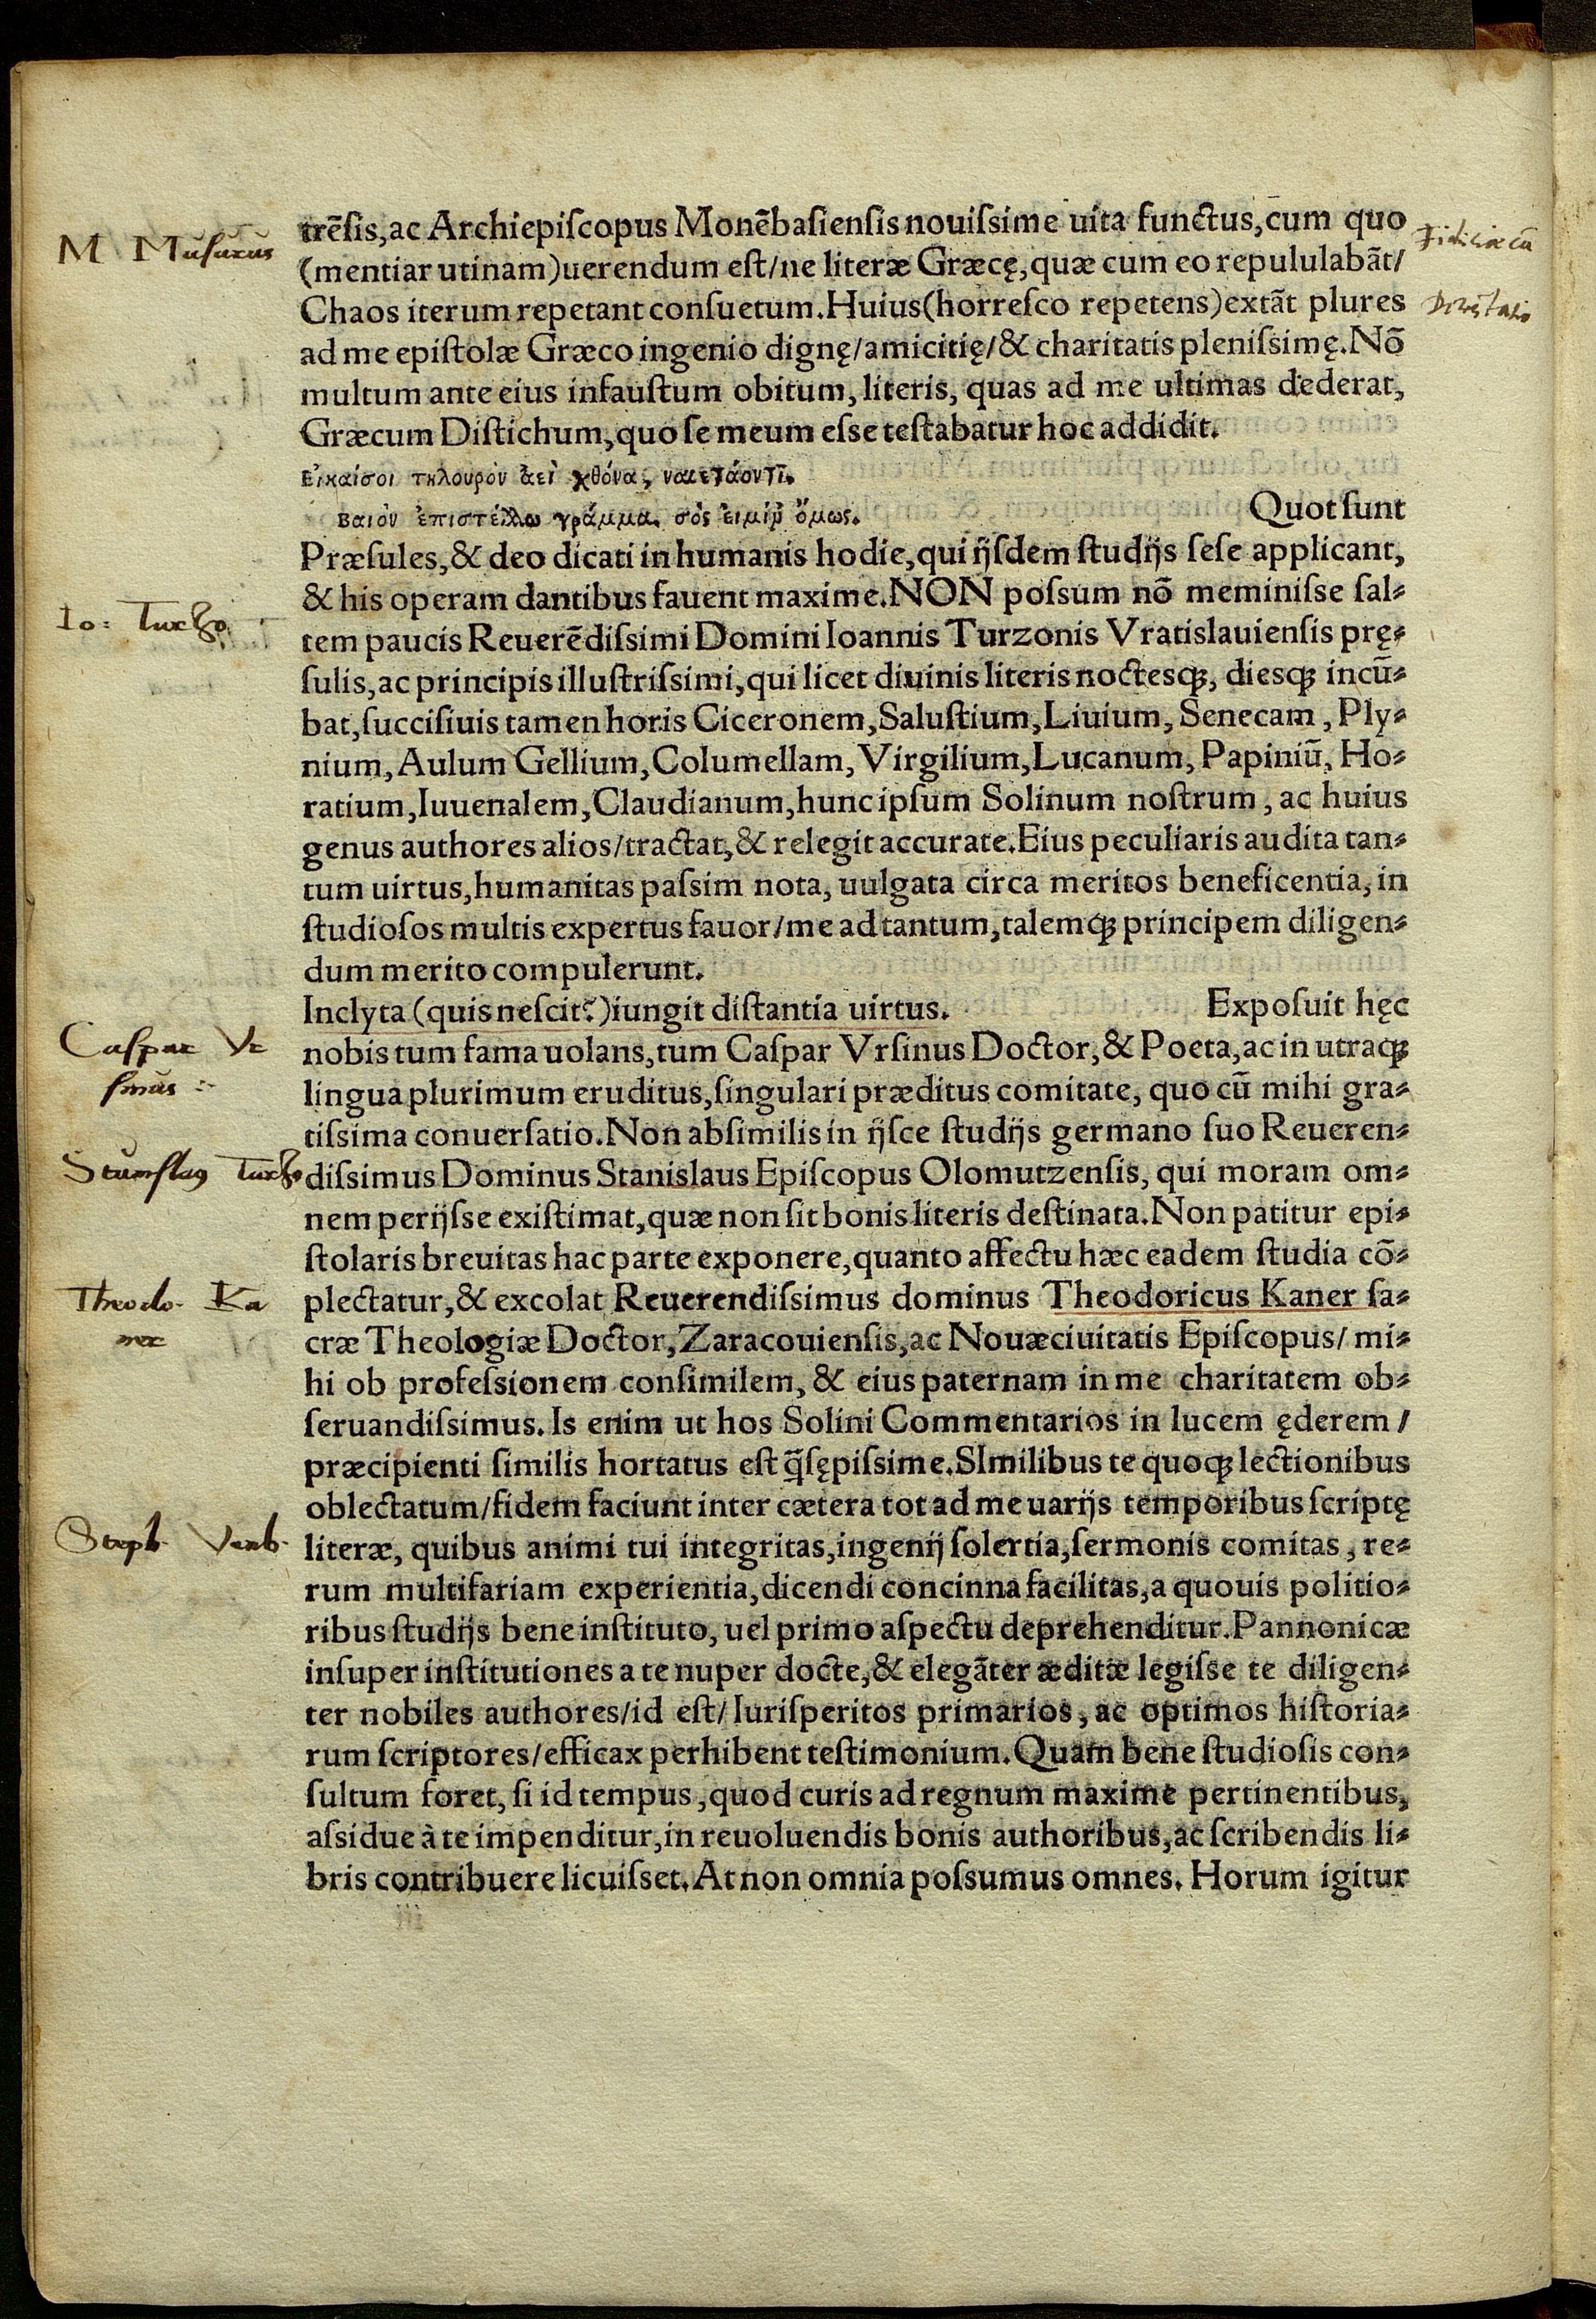 trēſis, ac Archiepiſcopus Monēbaſienſis nouiſsime uita functus, cum quo
(mentiar utinam) uerendum est/ne literæ Græcę, quæ cum eo repululabāt/
Chaos iterum repetant conſuetum. Huius (horreſco repetens) extāt plures
ad me epiſtolæ Græco ingenio dignę/amicitię/& charitatis pleniſsimę. Nō
multum ante eius infauſtum obitum, literis, quas ad me ultimas dederat,
Græcum Diſtichum, quo ſe meum eſse teſtabatur hoc addidit.
Εἰκαίσοι τηλουρὸν ἀεὶ χθόνα, ναιετάοντῖ.
βαιὸν ἐπιστέλλω γράμμα. σὸς εἰμὶ ὅμως.
Quot ſunt
Præſules, & deo dicati in humanis hodie, qui ijſdem ſtudijs ſeſe applicant,
& his operam dantibus fauent maxime. NON poſsum nō meminiſse ſal-
tem paucis Reuerēdiſsimi Domini Ioannis Turzonis Vratislauienſis prę-
ſulis, ac principis illuſtriſsimi, qui licet diuinis literis noctesꝗ, diesꝗ incū-
bat, ſucciſiuis tamen horis Ciceronem, Saluſtium, Liuium, Senecam, Ply-
nium, Aulum Gellium, Columellam, Virgilium, Lucanum, Papiniū, Ho-
ratium, Iuuenalem, Claudianum, hunc ipſum Solinum noſtrum, ac huius
genus authores alios/tractat, & relegit accurate. Eius peculiaris audita tan-
tum uirtus, humanitas paſsim nota, uulgata circa meritos beneficentia, in
ſtudioſos multis expertus fauor/me ad tantum, talemꝗ principem diligen-
dum merito compulerunt.
Inclyta (quis neſcit?) iungit diſtantia uirtus.
Expoſuit hęc
nobis tum fama uolans, tum Caſpar Vrſinus Doctor, & Poeta, ac in utraꝗ
lingua plurimum eruditus, ſingulari præditus comitate, quo cū mihi gra-
tiſsima conuerſatio. Non abſimilis in ijſce ſtudijs germano ſuo Reueren-
diſsimus Dominus Stanislaus Epiſcopus Olomutzenſis, qui moram om-
nem perijſse exiſtimat, quæ non ſit bonis literis deſtinata. Non patitur epi-
ſtolaris breuitas hac parte exponere, quanto affectu hæc eadem ſtudia cō-
plectatur, & excolat Reuerendiſsimus dominus Theodoricus Kaner ſa-
cræ Theologiæ Doctor, Zaracouienſis, ac Nouæciuitatis Epiſcopus/ mi-
hi ob profeſsionem conſimilem, & eius paternam in me charitatem ob-
ſeruandiſsimus. Is enim ut hos Solini Commentarios in lucem ęderem/
præcipienti ſimilis hortatus eſt q̄ſępiſsime. SImilibus te quoꝗ lectionibus
oblectatum/fidem faciunt inter cætera tot ad me uarijs temporibus ſcriptę
literæ, quibus animi tui integritas, ingenij ſolertia, ſermonis comitas, re-
rum multifariam experientia, dicendi concinna facilitas, a quouis politio-
ribus ſtudijs bene inſtituto, uel primo aſpectu deprehenditur. Pannonicæ
inſuper inſtitutiones a te nuper docte, & elegāter æditæ legiſse te diligen-
ter nobiles authores/id eſt/Iuriſperitos primarios, ac optimos hiſtoria-
rum ſcriptores/efficax perhibent teſtimonium. Quam bene ſtudioſis con-
ſultum foret, ſi id tempus, quod curis ad regnum maxime pertinentibus,
aſsidue à te impenditur, in reuoluendis bonis authoribus, ac ſcribendis li-
bris contribuere licuiſset. At non omnia poſsumus omnes. Horum igitur
M Muſurus
Io: Turzo
Caſpar Vr
ſinus
Stanſlaꝰ Turzo
Theodo. Ka
ner
Steph. Verb.